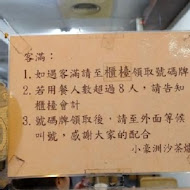 客滿：
1. 如遇客滿請至櫃檯領取號碼牌
2. 若用餐人數超過8人，請告知
櫃檯會計
3. 號碼牌領取後，請至外面等候
叫號，感謝大家的配合
小豪洲沙茶爐